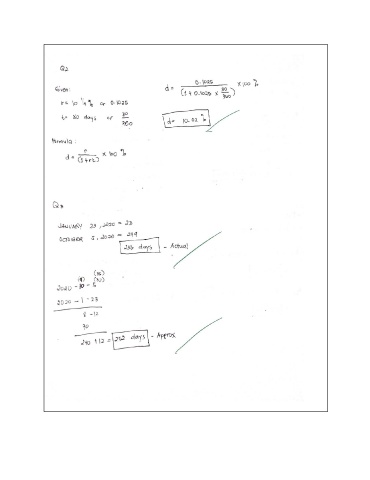 Q2
Given:
r = 10 1/4 % or 0.1025
t = 80 days or 80/360
Formula:
d = r/(1+rt) × 100 %
d = 0.1025/(1 + 0.1025 × 80/360) × 100 %
d = 10.02 %
Q3
JANUARY 23, 2020 = 23
OCTOBER 5, 2020 = 279
256 days - Actual
(9) (35)
2020 - 10 - 5
2020 - 1 - 23
8 - 12
30
240 + 12 = 252 days - Approx